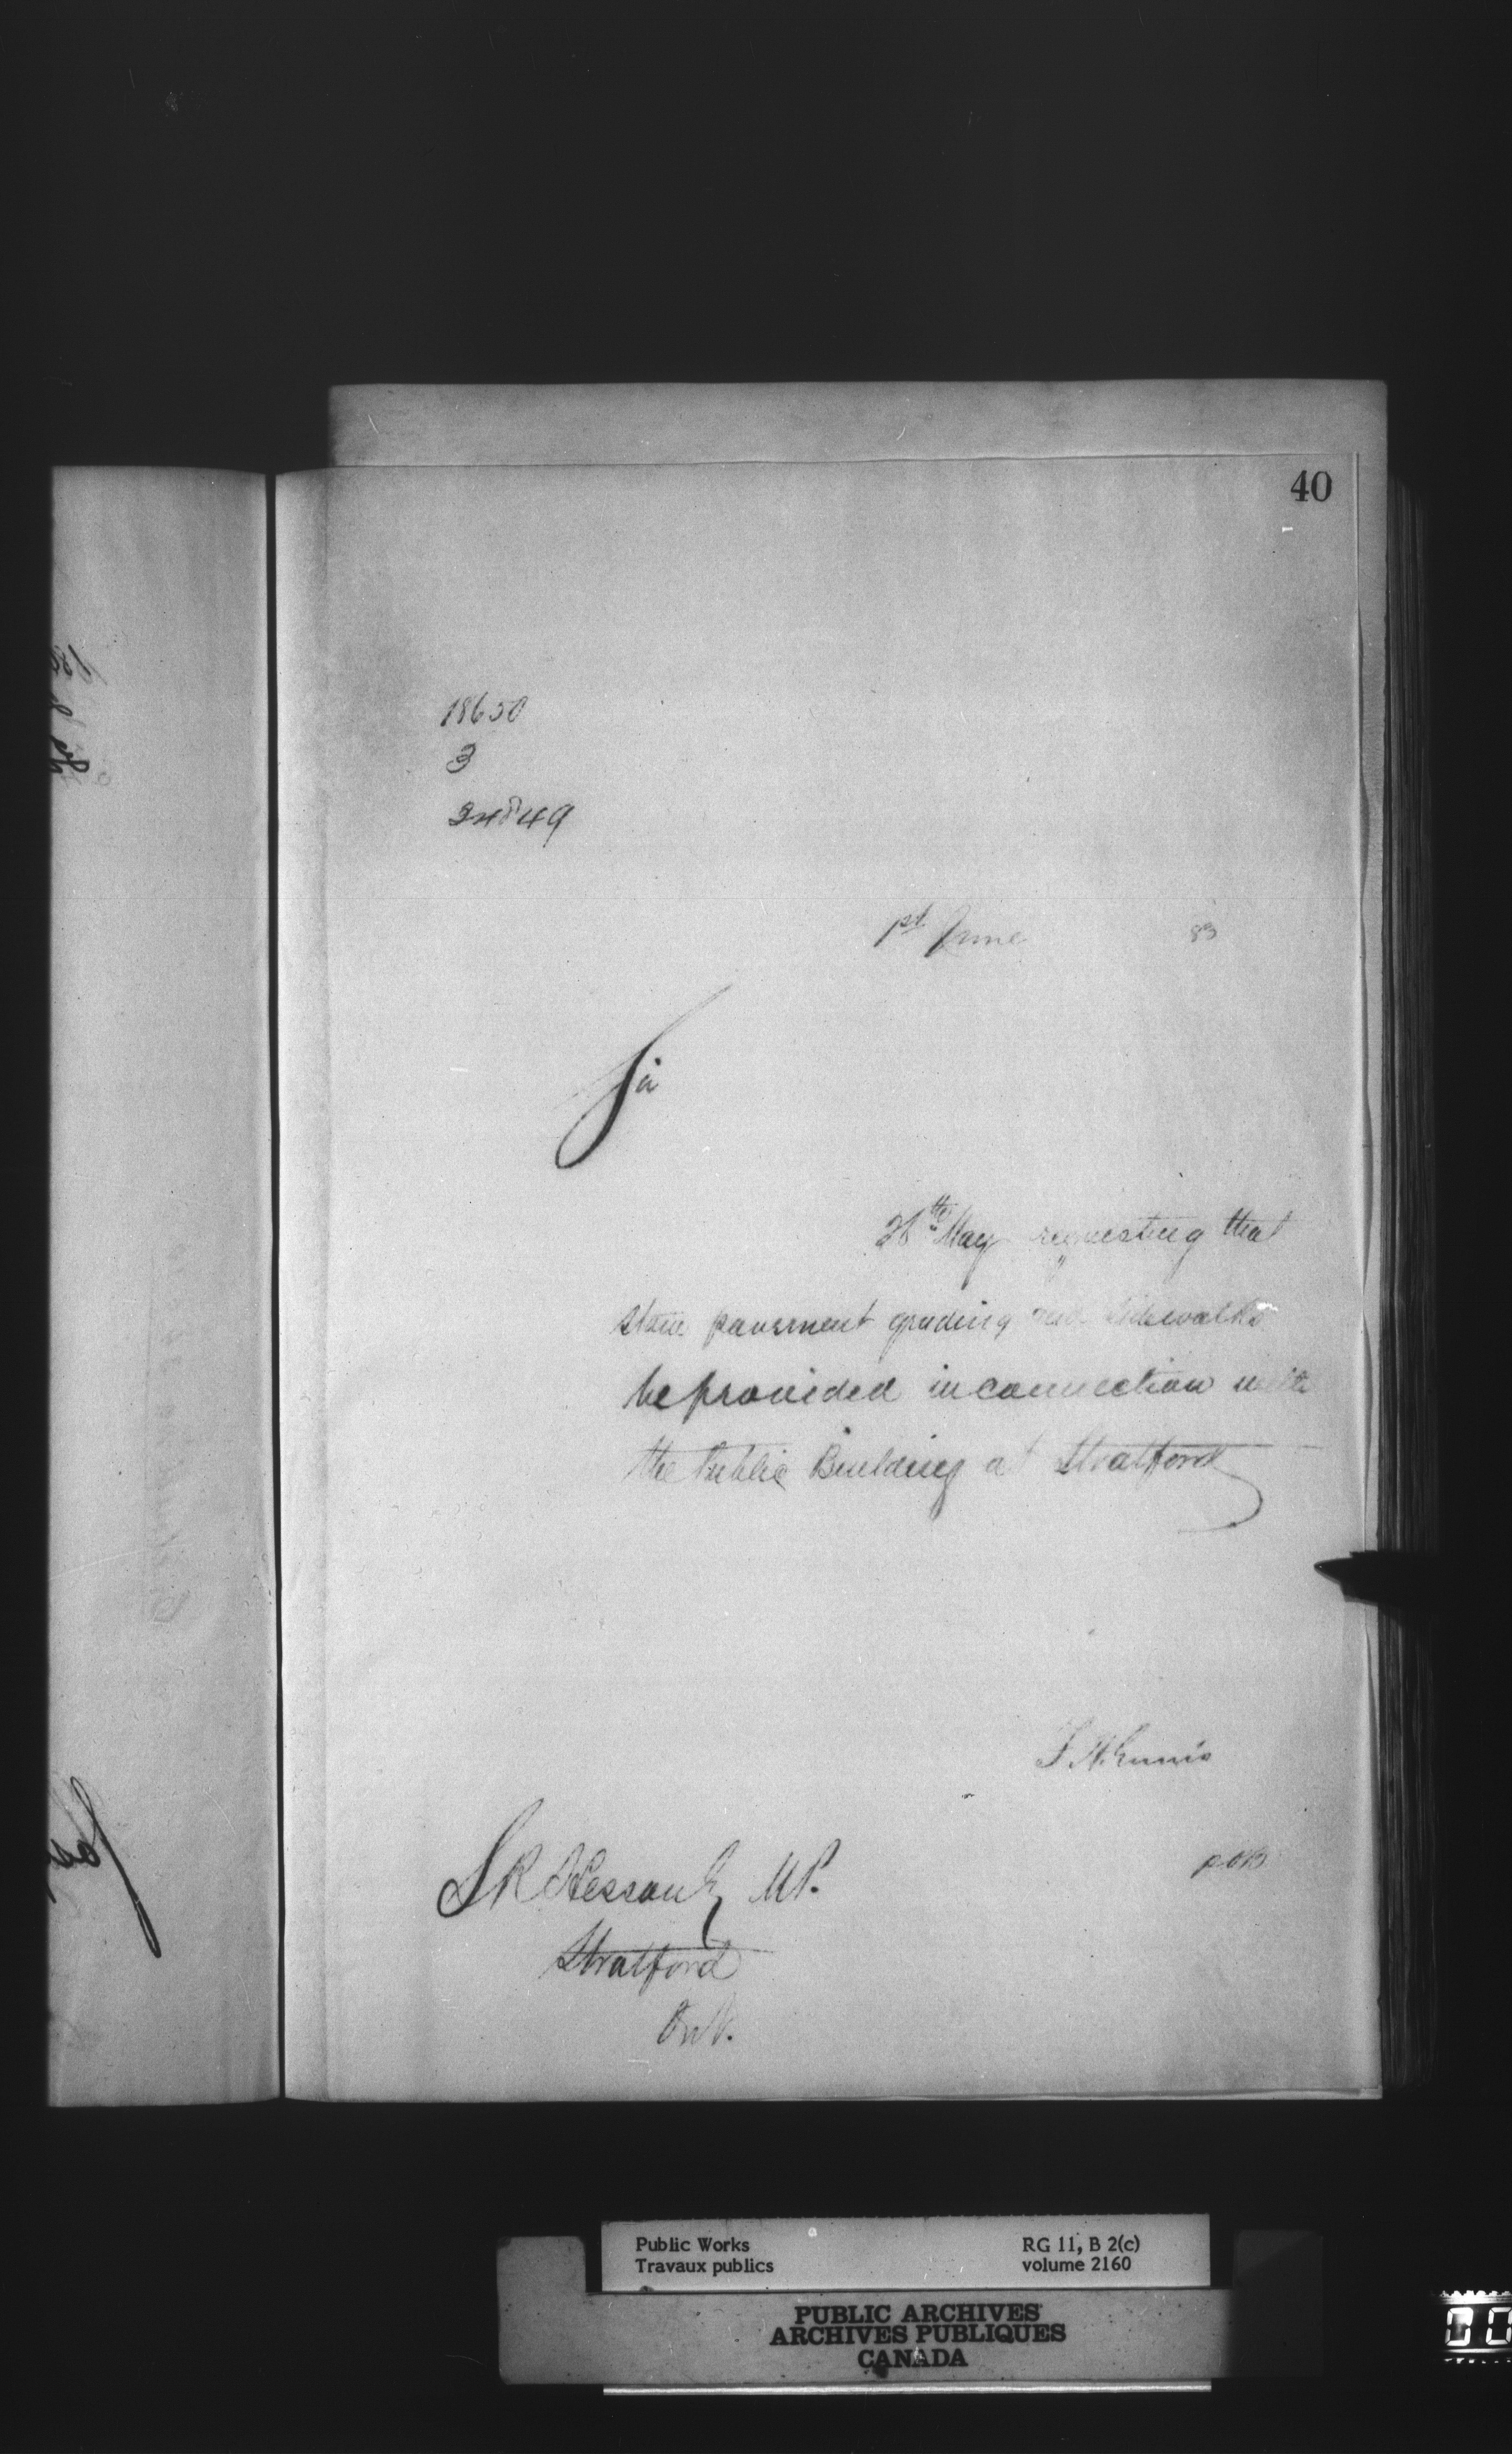 40
18650
3
34849
1st June 83
Sir
28th May requesting that
stone pavement grading and sidewalks
be provided in connection with
the Public Building at Stratford
F. H. Ennis
S R Hesson Esq M.P.
Stratford
Ont.
Public Works
Travaux publics
RG 11, B 2(c)
volume 2160
PUBLIC ARCHIVES
ARCHIVES PUBLIQUES
CANADA